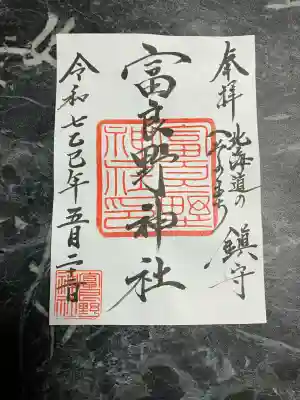 奉拝
北海道の
へそのまち
鎮守
富良野神社
富良野
神社印
令和七乙巳年五月二十二日
富良野
神社